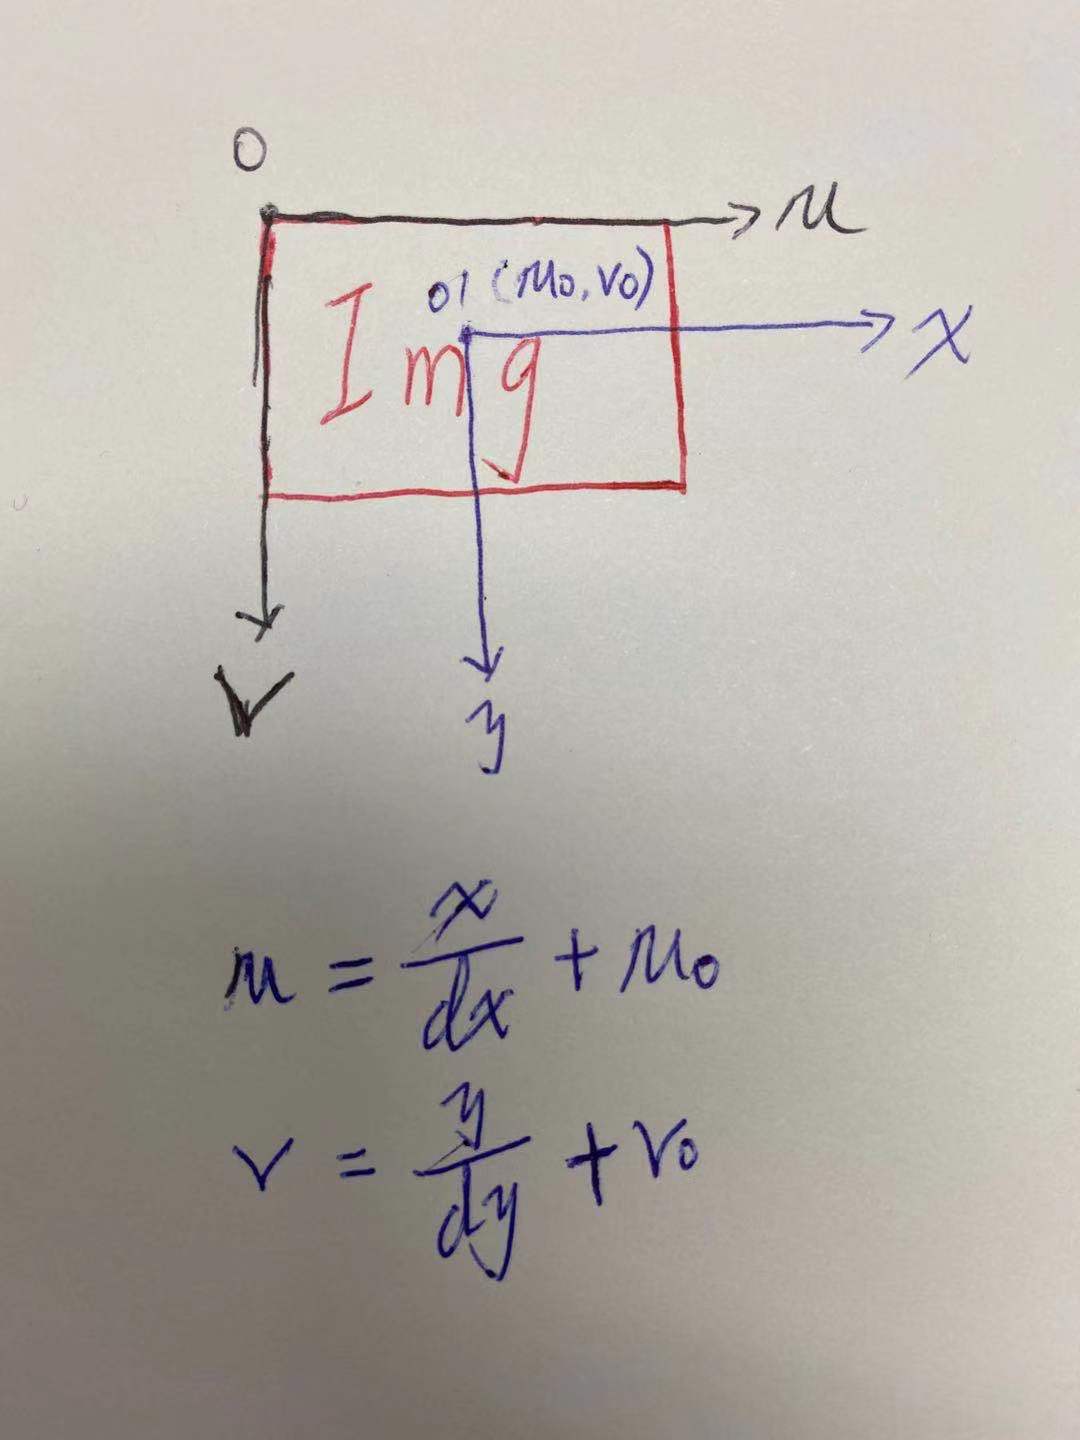 O
u
o1 (u0, v0)
x
Img
v
y
u = x/dx + u0
v = y/dy + v0